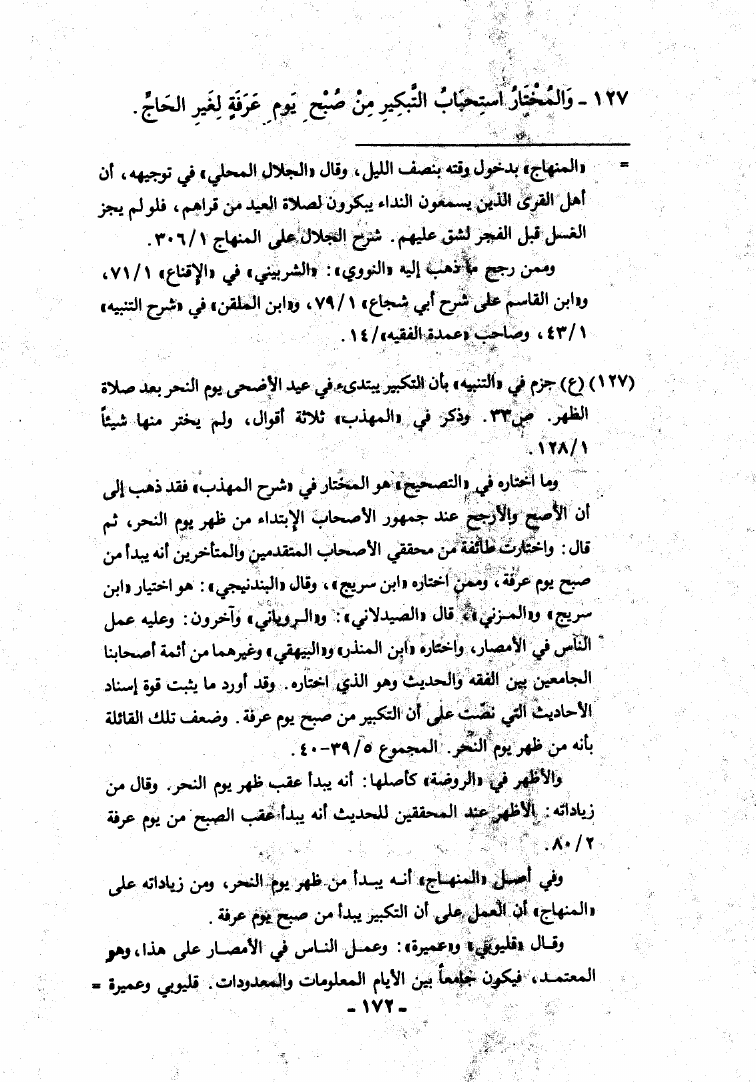 ١٢٧ - وَالمُخْتَارُ استِحبَابُ التَّبكِيرِ مِنْ صُبْحِ يَومِ عَرَفَةٍ لِغَيرِ الحَاجِّ.
= «المنهاج» بدخول وقته بنصف الليل، وقال «الجلال المحلي» في توجيهه، أن
أهل القرى الذين يسمعون النداء يبكرون لصلاة العيد من قراهم، فلو لم يجز
الغسل قبل الفجر لشق عليهم. شرح الجلال على المنهاج ٣٠٦/١.
وممن رجح ما ذهب إليه «النووي»: «الشربيني» في «الإقناع» ٧١/١،
و«ابن القاسم على شرح أبي شجاع» ٧٩/١، و«ابن الملقن» في «شرح التنبيه»
٤٣/١، وصاحب «عمدة الفقيه»/١٤.
(١٢٧) (ع) جزم في «التنبيه» بأن التكبير يبتدىء في عيد الأضحى يوم النحر بعد صلاة
الظهر. ص٣٣. وذكر في «المهذب» ثلاثة أقوال، ولم يختر منها شيئاً
١٢٨/١.
وما اختاره في «التصحيح» هو المختار في «شرح المهذب» فقد ذهب إلى
أن الأصح والأرجح عند جمهور الأصحاب الإبتداء من ظهر يوم النحر، ثم
قال: واختارت طائفة من محققي الأصحاب المتقدمين والمتأخرين أنه يبدأ من
صبح يوم عرفة، وممن اختاره «ابن سريج»، وقال «البندنيجي»: هو اختيار «ابن
سريج» و«المزني»، قال «الصيدلاني»: و«الروياني» وآخرون: وعليه عمل
الناس في الأمصار، واختاره «ابن المنذر» و«البيهقي» وغيرهما من أئمة أصحابنا
الجامعين بين الفقه والحديث وهو الذي اختاره. وقد أورد ما يثبت قوة إسناد
الأحاديث التي نصّت على أن التكبير من صبح يوم عرفة. وضعف تلك القائلة
بأنه من ظهر يوم النّحر. المجموع ٣٩/٥-٤٠.
والأظهر في «الروضة» كأصلها: أنه يبدأ عقب ظهر يوم النحر. وقال من
زياداته: الأظهر عند المحققين للحديث أنه يبدأ عقب الصبح من يوم عرفة
٨٠/٢.
وفي أصل «المنهاج» أنه يبدأ من ظهر يوم النحر، ومن زياداته على
«المنهاج» أن العمل على أن التكبير يبدأ من صبح يوم عرفة.
وقال «قليوبي» و«عميرة»: وعمل الناس في الأمصار على هذا، وهو
المعتمد، فيكون جامعاً بين الأيام المعلومات والمعدودات. قليوبي وعميرة =
- ١٧٢ -